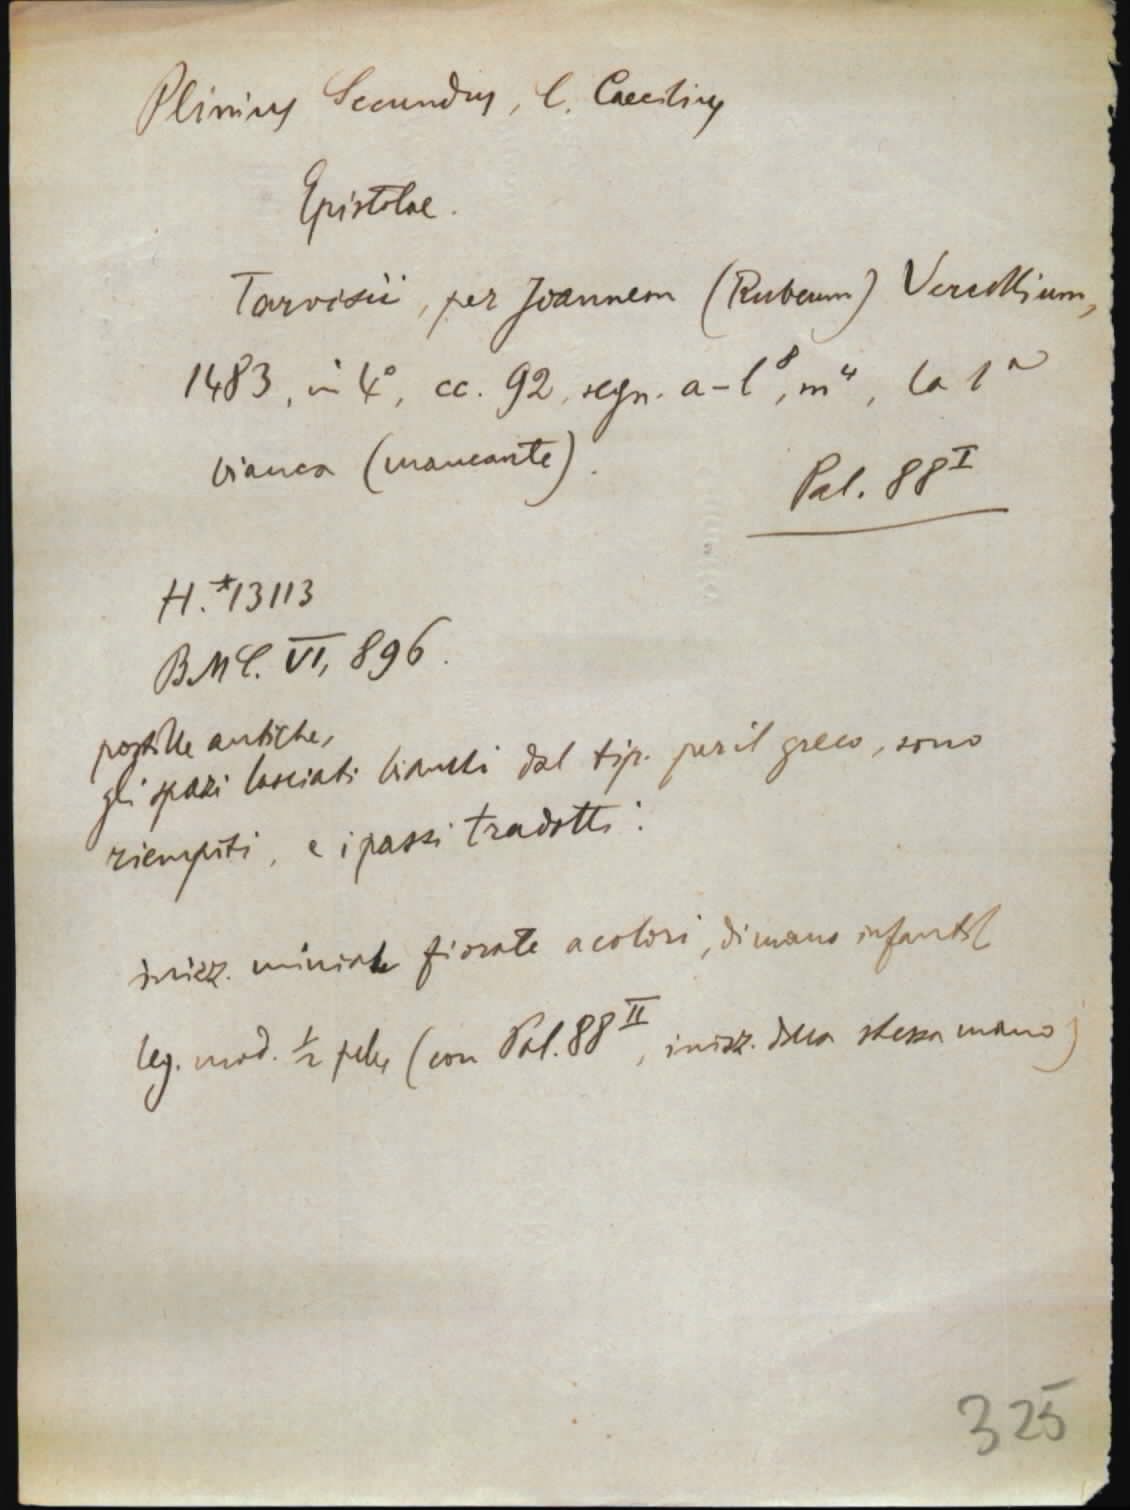 Plinius Secundus, C. Caecilius
Epistolae.
Tarvisii, per Joannem (Rubeum) Vercellium,
1483, in 4°, cc. 92, segn. a-l⁸, m⁴, la 1ª
bianca (mancante).
Pal. 88ᴵ
H.*13113
BMC. VI, 896.
postille antiche,
gli spazi lasciati bianchi dal tip. per il greco, sono
riempiti, e i passi tradotti.
inizz. miniate fiorate a colori, di mano infantil
leg. mod. ½ pelle (con Pal. 88ᴵᴵ, inizz. della stessa mano)
325